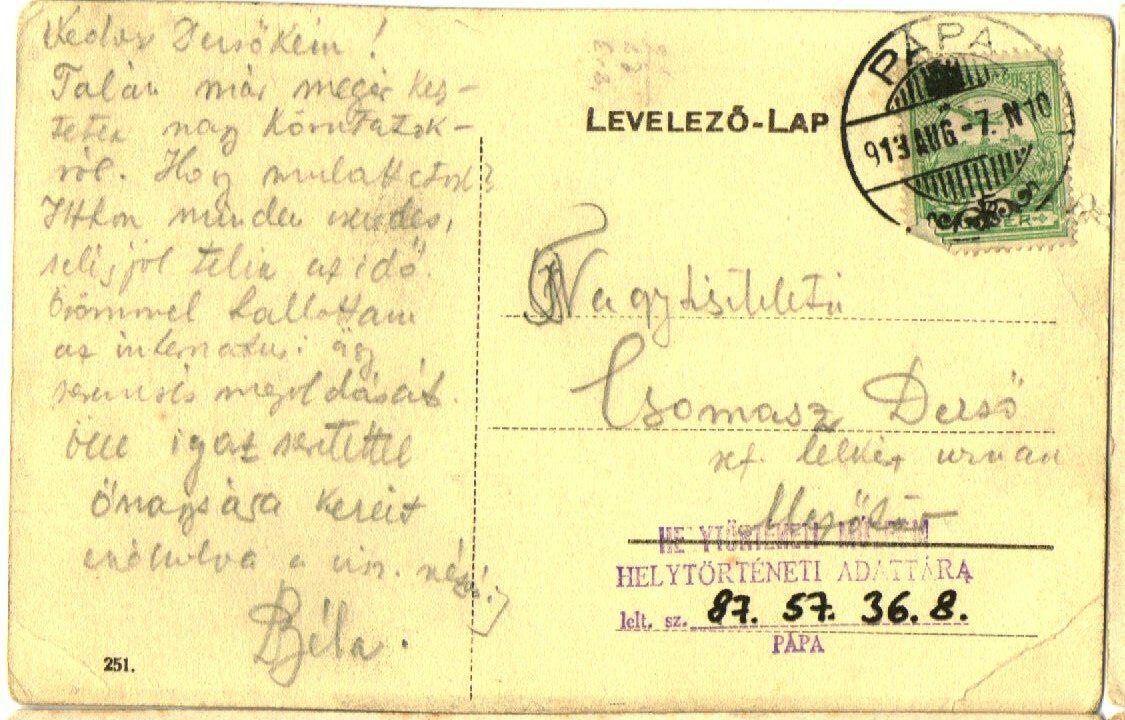 Kedves Dezsőkém!
Talán már megér kez-
tetek nagy Körutatok-
ról. Hogy mulattatok?
Itthon minden csendes,
telik az idő.
Örömmel hallottam
az internatusi ügy
szerencsés megoldását.
Ölel igaz szeretettel
Őnagysága kezeit
csókolva a viszontlátásig
Béla.
251.
LEVELEZŐ-LAP
PÁPA
913 AUG -7. N 10
Nagytiszteletü
Csomasz Dezső
ref. lelkész urnak
Mezőtúr
HELYTÖRTÉNETI MÚZEUM
HELYTÖRTÉNETI ADATTÁRA
lelt. sz. 87. 57. 36. 8.
PÁPA